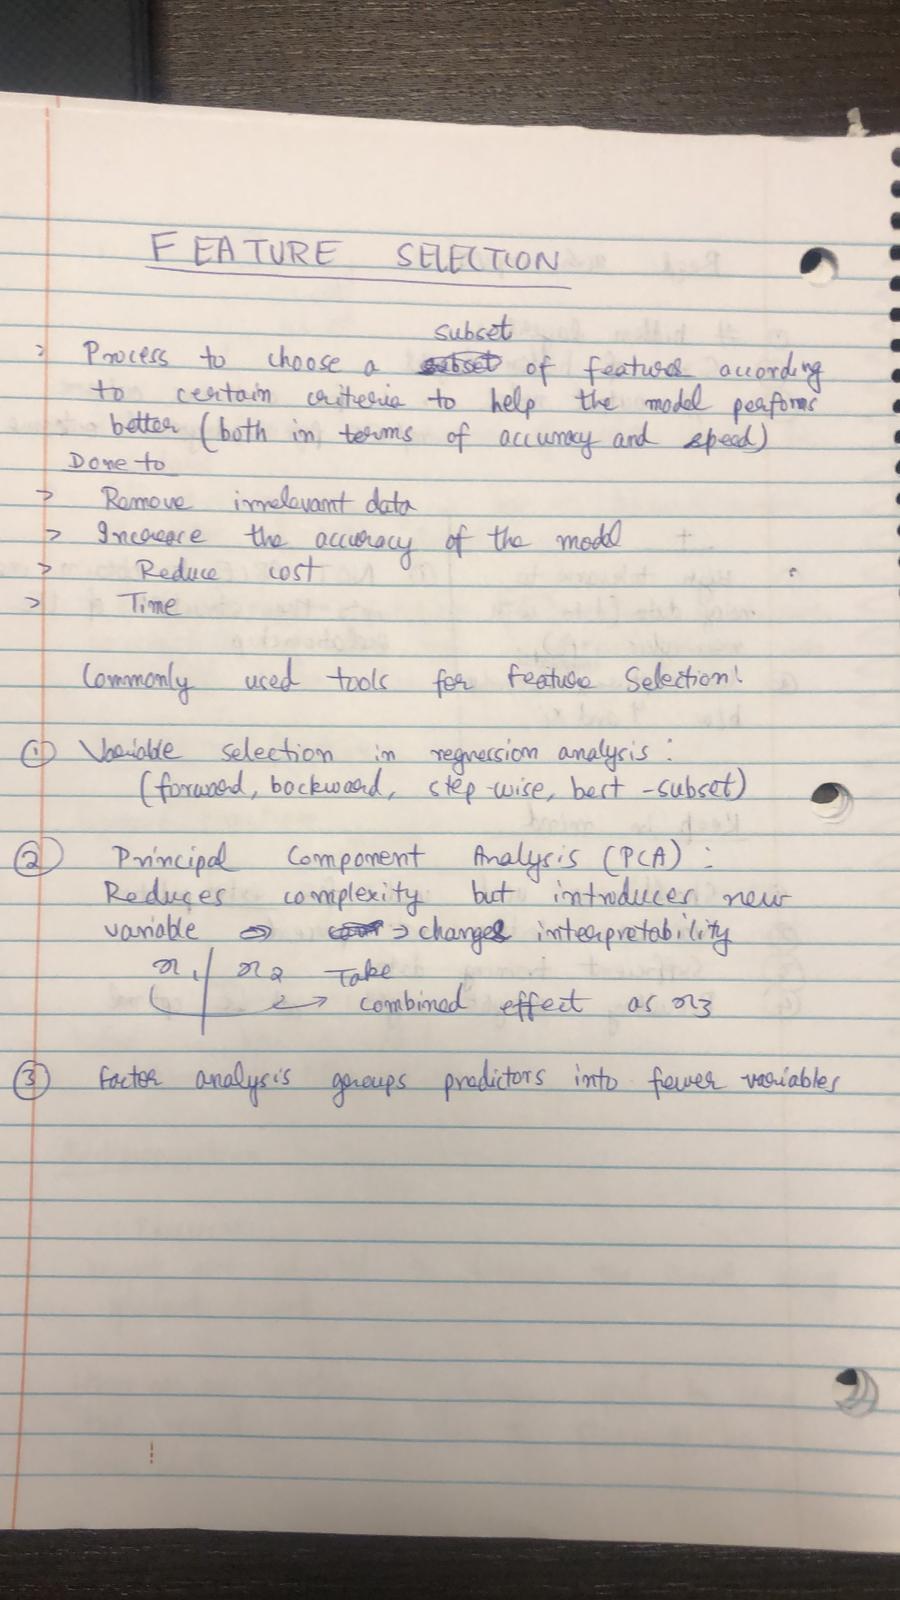 FEATURE SELECTION
subset
> Process to choose a subset of features according
to certain criteria to help the model performs
better (both in terms of accuracy and speed)
Done to
> Remove irrelevant data
> Increase the accuracy of the model
> Reduce cost
> Time
Commonly used tools for feature Selection:
① Variable selection in regression analysis :
(forward, backward, step-wise, best-subset)
② Principal Component Analysis (PCA) :
Reduces complexity but introduces new
variable ⇒ ⇒ changes interpretability
x1 / x2 Take
→ combined effect as x3
③ Factor analysis groups predictors into fewer variables